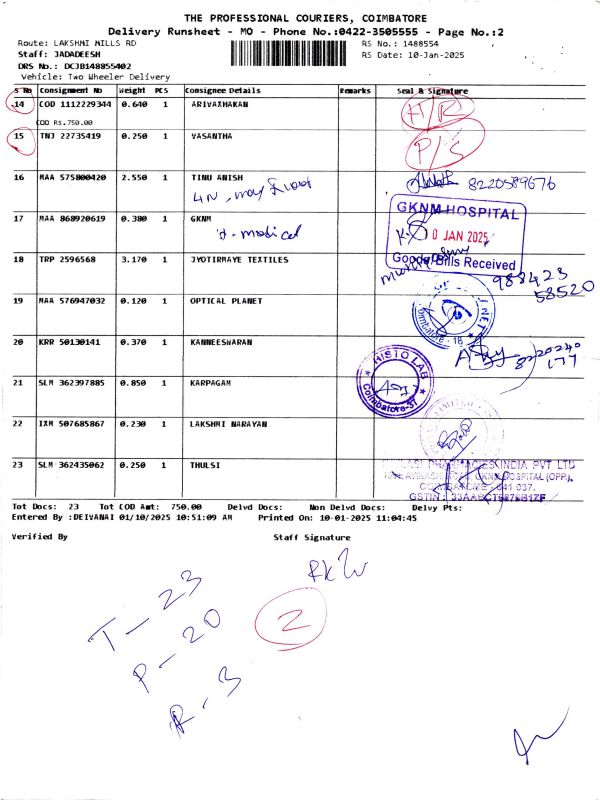 THE PROFESSIONAL COURIERS, COIMBATORE
Delivery Runsheet - MO - Phone No.:0422-3505555 - Page No.:2
Route: LAKSHMI MILLS RD
RS No.: 1488554
Staff: JADADEESH
RS Date: 10-Jan-2025
DRS No.: DCJB148855402
Vehicle: Two Wheeler Delivery
S No Consignment No Weight PCS Consignee Details Remarks Seal & Signature
14 COD 1112229344 0.640 1 ARIVAZHAKAN H/R
COD Rs.750.00
15 TNJ 22735419 0.250 1 VASANTHA P/S
16 MAA 575800420 2.550 1 TINU ANISH 8220589676
17 MAA 868920619 0.380 1 GKNM
medical
GKNM HOSPITAL
10 JAN 2025
Goods/Bills Received
18 TRP 2596568 3.170 1 JYOTIRMAYE TEXTILES
988423
58520
19 MAA 576947032 0.120 1 OPTICAL PLANET
Coimbatore - 18
20 KRR 50130141 0.370 1 KANNEESWARAN
8220240
177
HISTO LAB
Coimbatore-37
21 SLM 362397885 0.850 1 KARPAGAM
22 IXM 507685867 0.230 1 LAKSHMI NARAYAN
23 SLM 362435062 0.250 1 THULSI
INDIA PVT LTD
HOSPITAL (OPP),
Tot Docs: 23 Tot COD Amt: 750.00 Delvd Docs: Non Delvd Docs: Delvy Pts:
Entered By :DEIVANAI 01/10/2025 10:51:09 AM Printed On: 10-01-2025 11:04:45
Verified By Staff Signature
T - 23
P - 20
R - 3
2